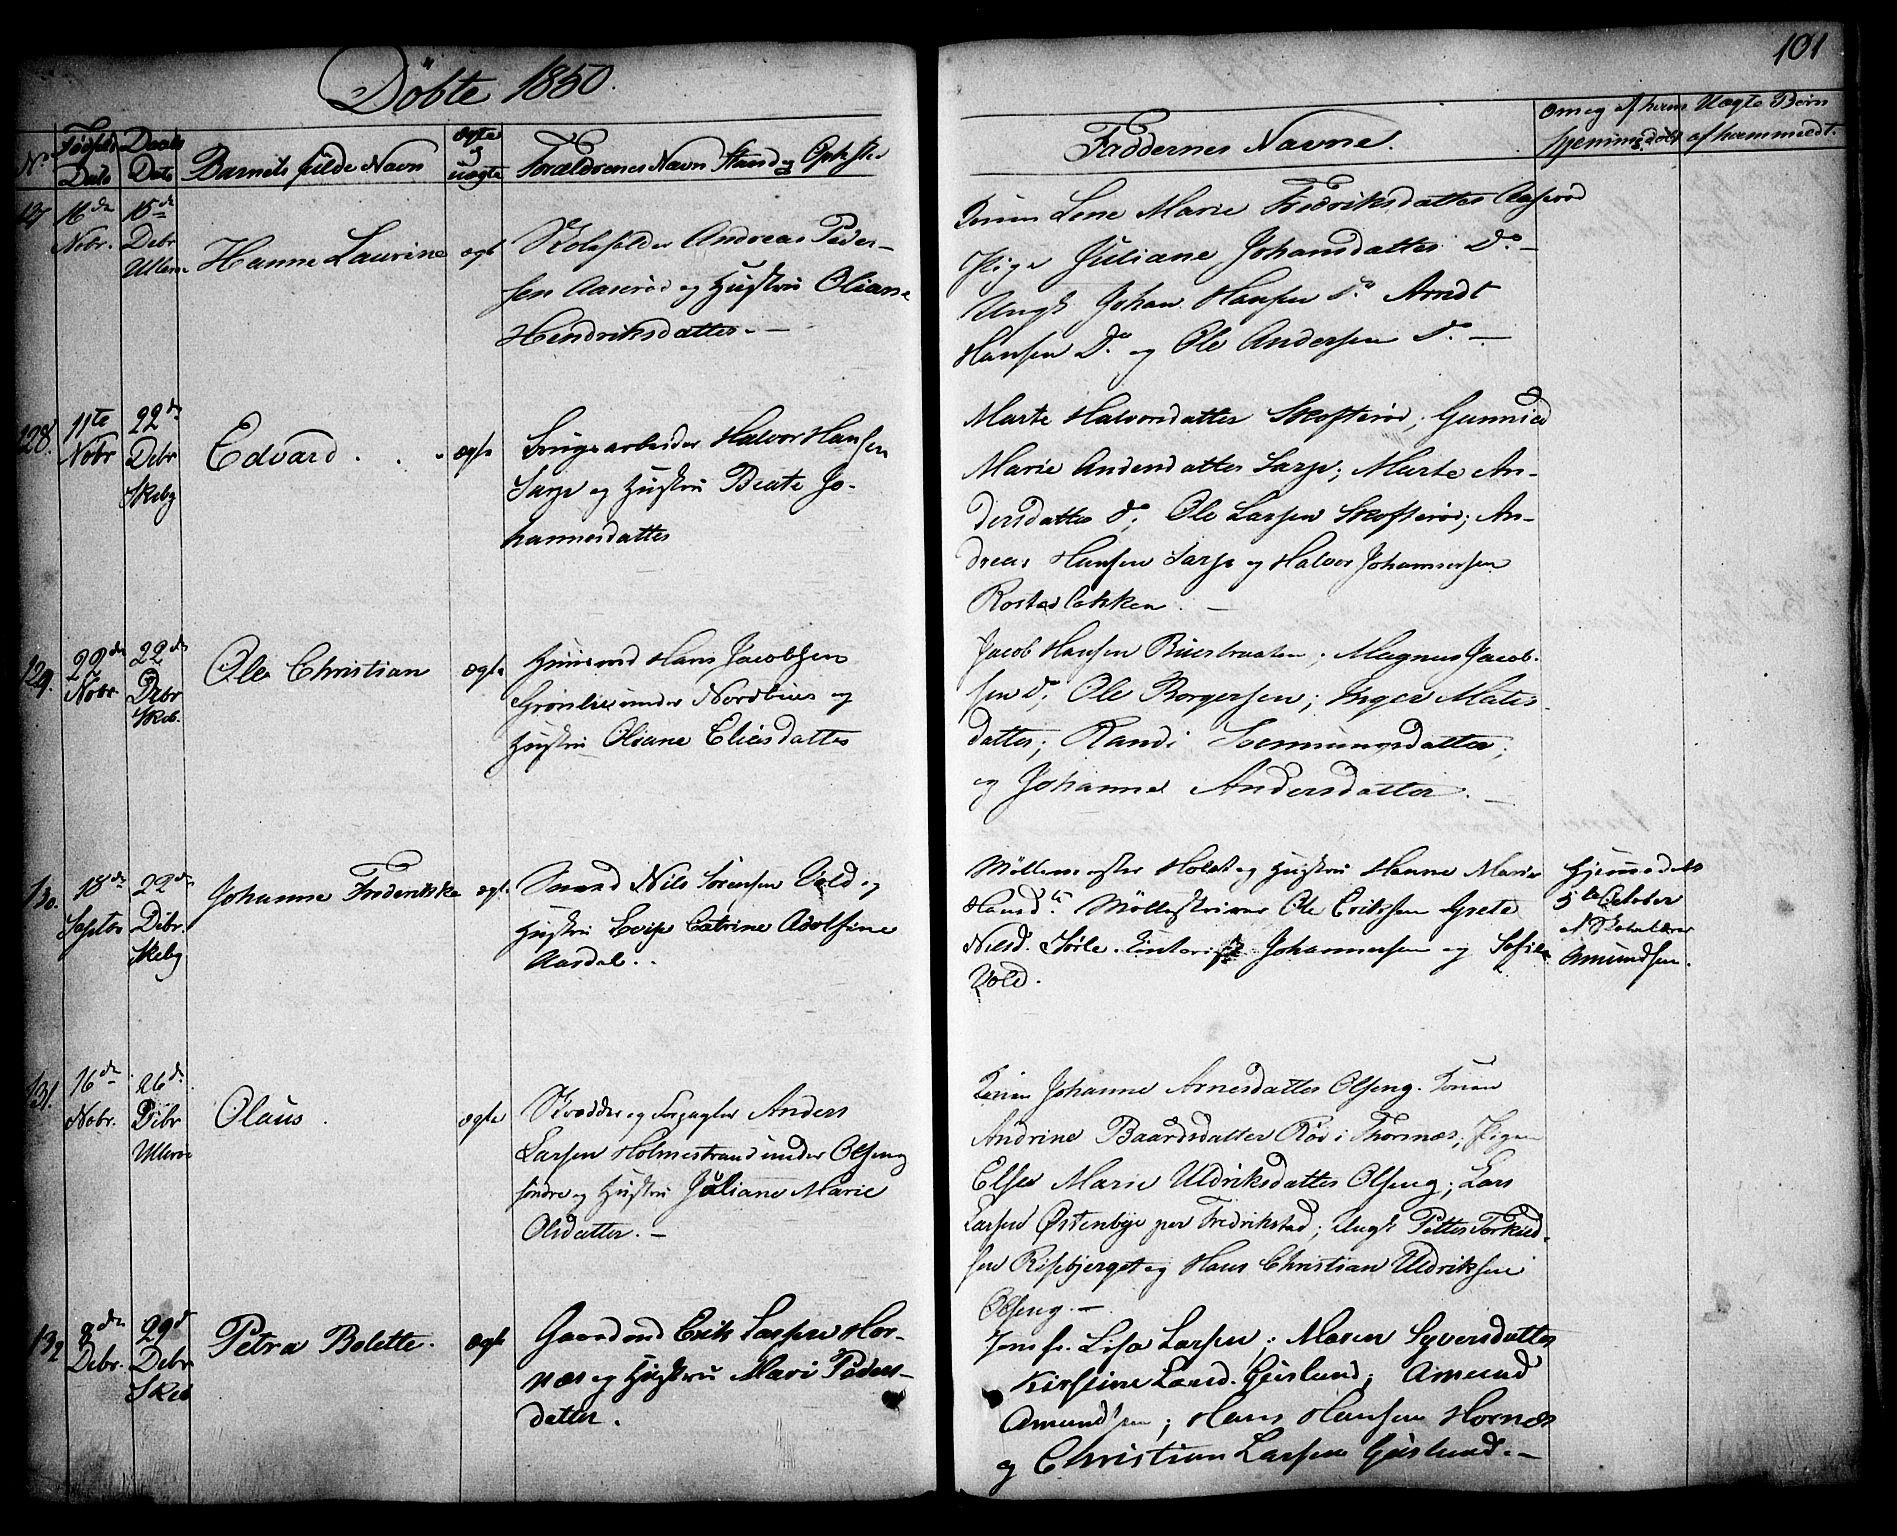 101
Döbte 1850.
No. Födsels Dato Daabs Dato Barnets fulde Navn ægte og uægte Forældrenes Navn Stand og
Faddernes Navne.
om og af hvem hjemmedøbt
Uægte Børn af hvem meedt.
127 16de Nobr. 15de Debr Ullerøe
Hanne Laurine
ægte
Andreas Peder-
sen Aaserød og Hustru Oliane
Hendriksdatter. —
Lene Marie Fredriksdatter Aaserød
Pige Juliane Johansdatter Do. —
Ungk Johan Hansen Do. Arndt
Hansen Do. og Ole Andersen Do. —
128. 11te Nobr 22de Debr Skeby
Edvard . . .
ægte
Brugsarbeider Halvor Hansen
Sarp og Hustru Beate Jo-
hannesdatter
Marte Halvorsdatter Skofterød; Gunnild
Marie Andersdatter Sarp; Marte An-
dersdatter Do; Ole Larsen Skofterød; An-
dreas Hansen Sarp og Halvor Johannesen
Rostadløkken. —
129. 22de Nobr 22de Debr Skeb.
Ole Christian
ægte
Huusmd Hans Jacobsen
Grønlie under Nordbye og
Hustru Oliane Eliesdatter
Jacob Hansen Buestranten; Magnus Jacob-
sen Do; Ole Borgersen; Inger Mates
datter; Randi Svenningsdatter;
og Johanne Andersdatter. —
130. 18de Septbr 22de Debr. Skeby
Johanne Frederikke
ægte
Nils Sörensen Vold og
Hustru Lovise Catrine Adolfine
Aardal. .
Möllemester Holst og Hustru Hanne Marie
Hansdtr. Mølleskriver Ole Eriksen Grete
Nilsd. Sörle. Johannesen og Sofie
Vold.
Hjemmedøbt
5te October
af Skolelærer
Amundsen.
131. 16de Nobr. 26de Debr Ullerøe
Olaus.
ægte
Skrædder og Anders
Larsen Holmestrand under Olseng
söndre og Hustru Juliane Marie
Olsdatter. —
Johanne Arnesdatter Olseng.
Andrine Baardsdatter Röd i Thornæs; Pigen
Else Marie Uldriksdatter Olseng; Lars
Larsen Østenbye per Fredrikstad; Ungk Petter Torkild-
sen Risbjerget og Hans Christian Uldriksen
Olseng. —
132 8de Debr. 29d Debr Skeb
Petra Bolette.
ægte
Gaardmd Erik Larsen Hor-
næs og Hustru Mari Peders-
datter.
Jomfr. Lisa Larsen; Maren Syversdatter
Kirstine Larsd. Guslund; Amund
Amundsen; Hans Hansen Hornæs
og Christian Larsen Guslund. —